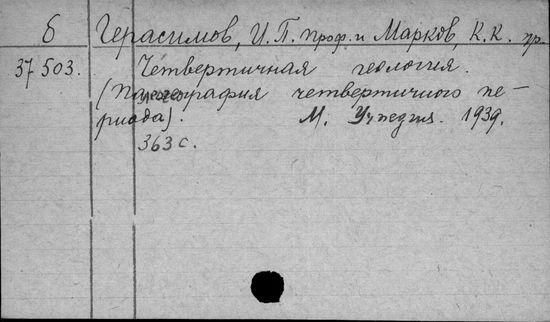 б Герасимов, И. П. проф. и Марков, К. К. пр.
37 503. Четвертичная геология.
(Палеография четвертичного пе-
риода). М. Учпедгиз. 1939.
363 с.